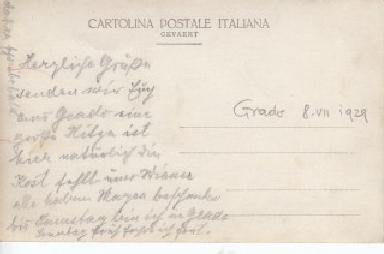 CARTOLINA POSTALE ITALIANA
GEVAERT
Herzliche Grüße
senden wir Euch
aus Grado eine
große Hitze ist
hier natürlich die
Kost fehlt uns Wiener
alle haben Magen
bis Samstag bin ich in Grado
Sonntag früh ich fort.
Grado 8.VII 1929